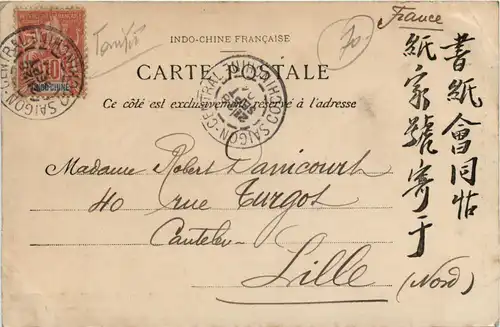 France
Tarif
70
INDO-CHINE FRANÇAISE
CARTE POSTALE
Ce côté est exclusivement réservé à l'adresse
INDO-CHINE
10
SAIGON-CENTRAL COCHINCHINE
SAIGON-CENTRAL COCHINCHINE
Madame Robert Danicourt
40 rue Turgot
Canteleu
Lille
(Nord)
書紙會同帖
紙家號寄于